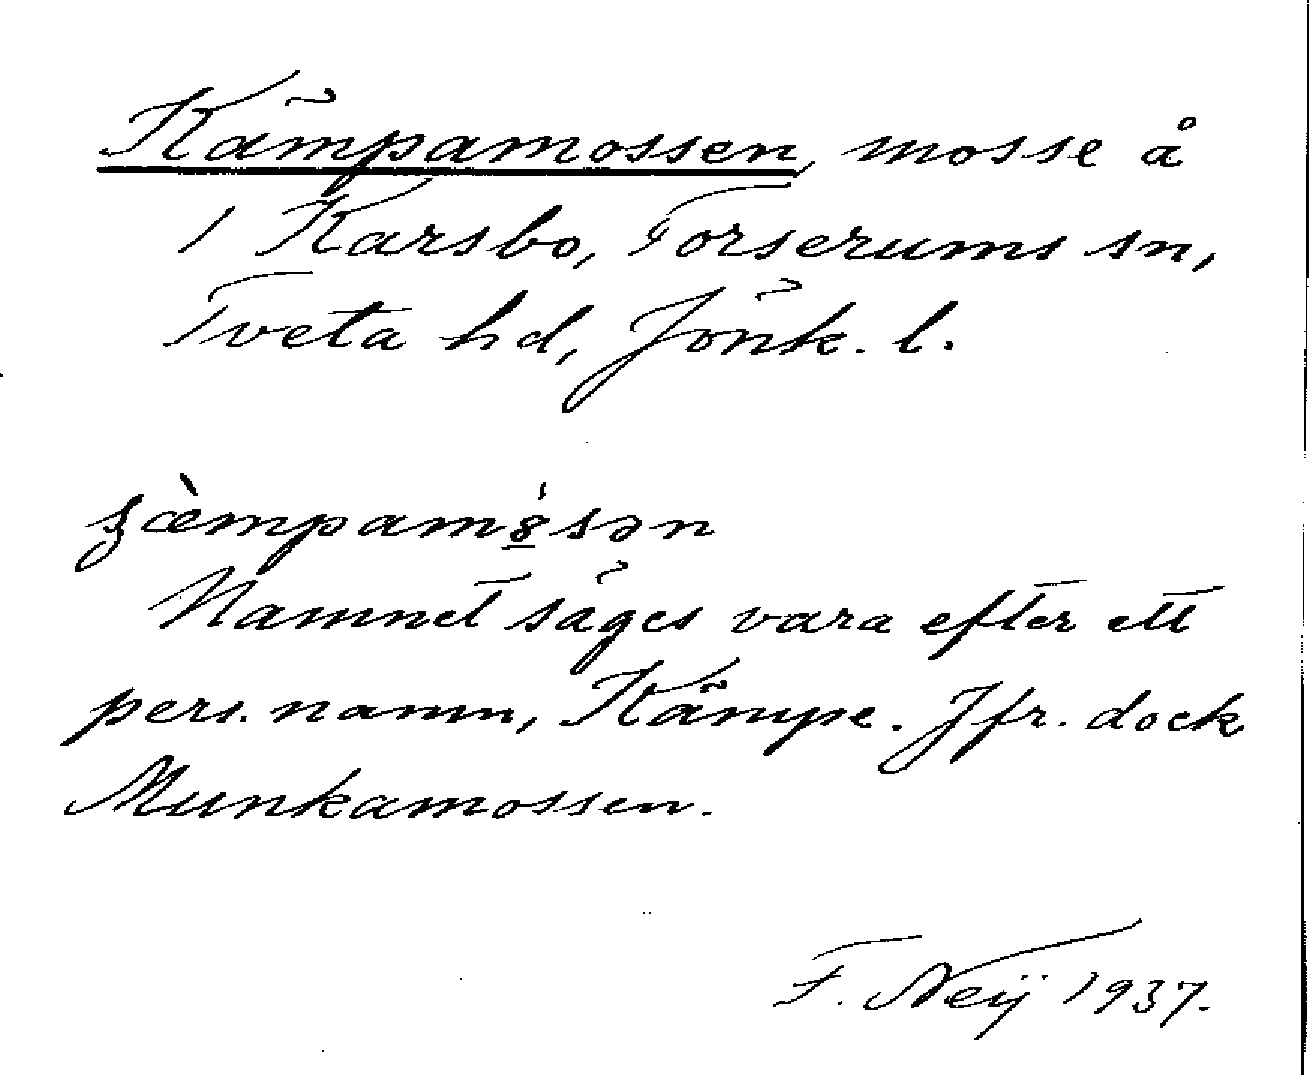 Kämpamossen, mosse å
1 Karsbo, Torserums sn,
Tveta hd, Jönk. l.
Namnet säges vara efter ett
pers. namn, Kämpe. Jfr. dock
Munkamossen.
F. Neij 1937.